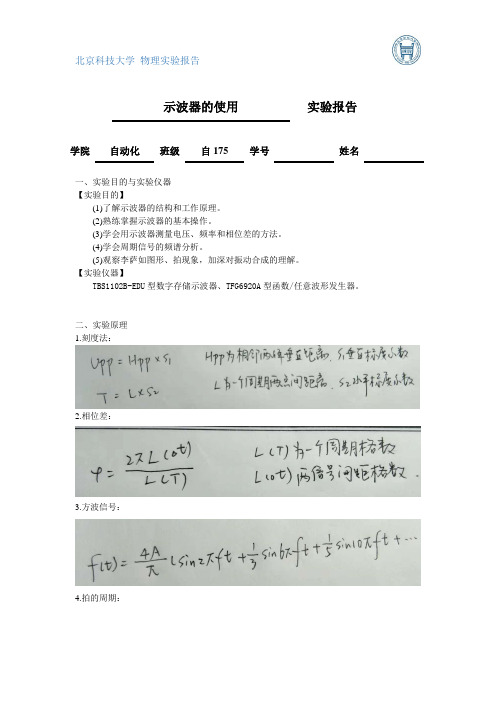 北京科技大学 物理实验报告
示波器的使用 实验报告
学院 自动化 班级 自175 学号 姓名
一、实验目的与实验仪器
【实验目的】
(1)了解示波器的结构和工作原理。
(2)熟练掌握示波器的基本操作。
(3)学会用示波器测量电压、频率和相位差的方法。
(4)学会周期信号的频谱分析。
(5)观察李萨如图形、拍现象，加深对振动合成的理解。
【实验仪器】
TBS1102B-EDU型数字存储示波器、TFG6920A型函数/任意波形发生器。
二、实验原理
1.刻度法：
Upp = Hpp × S₁ Hpp为相邻两峰垂直距离，S₁垂直标度示数
T = L × S₂ L为一个周期两点间距离，S₂水平标度示数
2.相位差：
φ = 2πL(Δt) / L(T) L(T)为一个周期格数
L(Δt)两信号间距格数.
3.方波信号：
f(t) = 4A/π (sin2πft + 1/3 sin6πft + 1/5 sin10πft + ···
4.拍的周期：